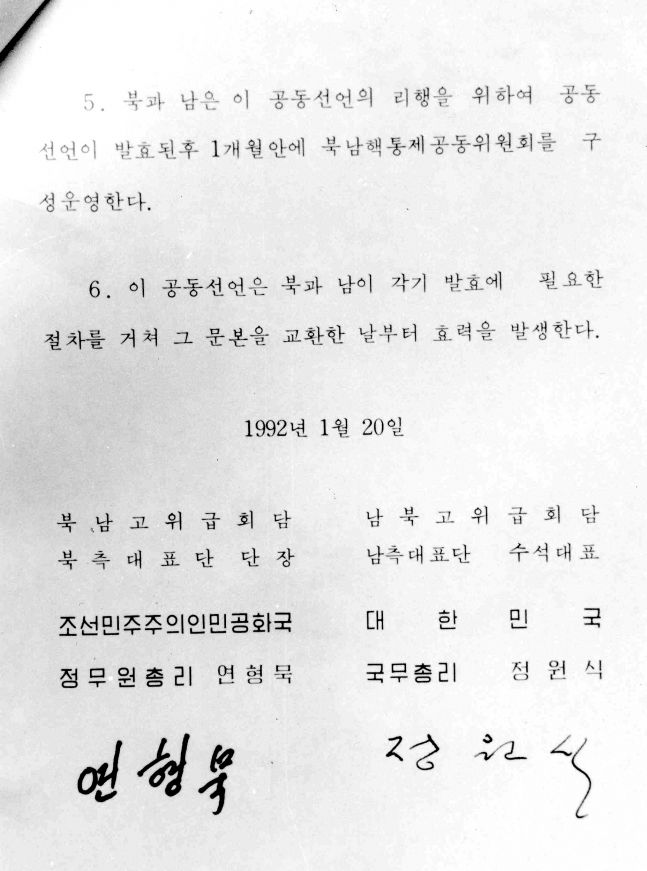 5. 북과 남은 이 공동선언의 리행을 위하여 공동
선언이 발효된후 1개월안에 북남핵통제공동위원회를 구
성운영한다.
6. 이 공동선언은 북과 남이 각기 발효에 필요한
절차를 거쳐 그 문본을 교환한 날부터 효력을 발생한다.
1992년 1월 20일
북남고위급회담
북측대표단 단장
조선민주주의인민공화국
정무원총리 연형묵
연형묵
남북고위급회담
남측대표단 수석대표
대한민국
국무총리 정원식
정원식